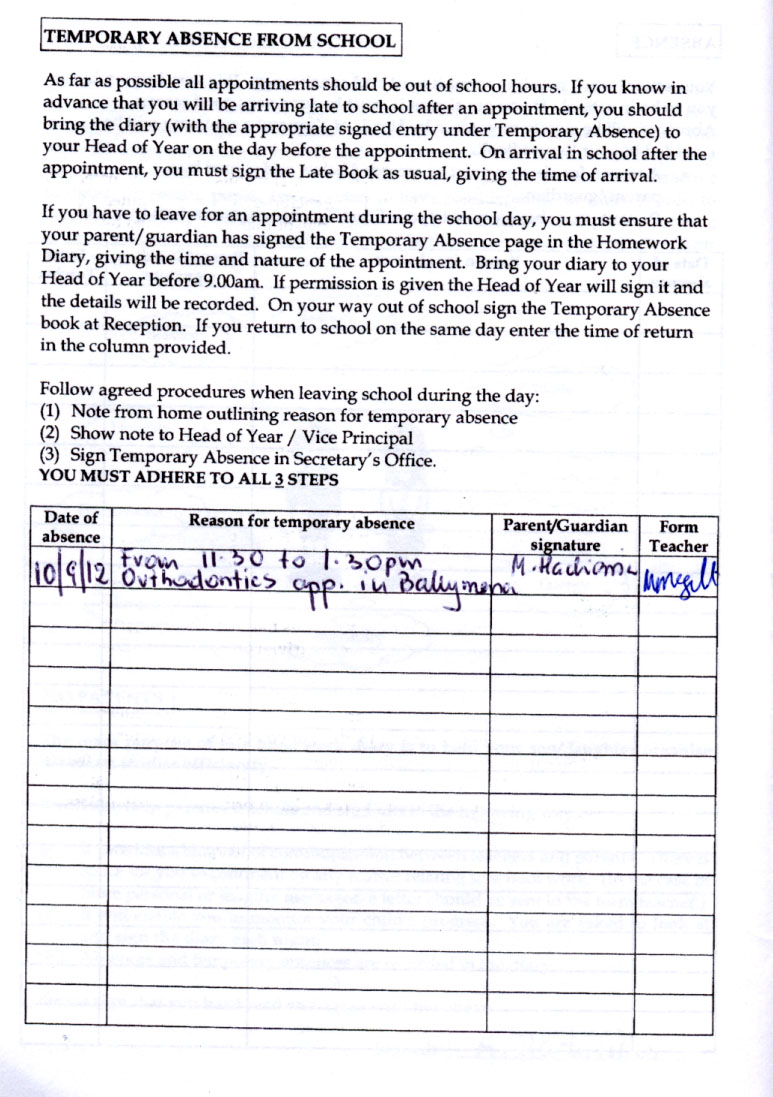 TEMPORARY ABSENCE FROM SCHOOL
As far as possible all appointments should be out of school hours. If you know in
advance that you will be arriving late to school after an appointment, you should
bring the diary (with the appropriate signed entry under Temporary Absence) to
your Head of Year on the day before the appointment. On arrival in school after the
appointment, you must sign the Late Book as usual, giving the time of arrival.
If you have to leave for an appointment during the school day, you must ensure that
your parent/guardian has signed the Temporary Absence page in the Homework
Diary, giving the time and nature of the appointment. Bring your diary to your
Head of Year before 9.00am. If permission is given the Head of Year will sign it and
the details will be recorded. On your way out of school sign the Temporary Absence
book at Reception. If you return to school on the same day enter the time of return
in the column provided.
Follow agreed procedures when leaving school during the day:
(1) Note from home outlining reason for temporary absence
(2) Show note to Head of Year / Vice Principal
(3) Sign Temporary Absence in Secretary's Office.
YOU MUST ADHERE TO ALL 3 STEPS
Date of absence Reason for temporary absence Parent/Guardian signature Form Teacher
From 11.30 to 1.30pm M.
10/9/12 Orthodontics app. in Ballymena